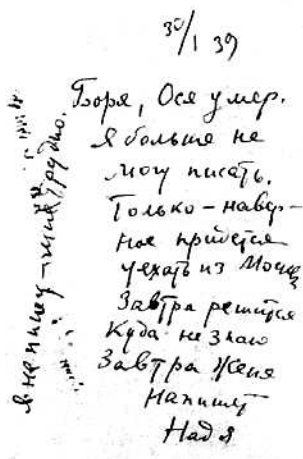 30/I 39
Боря, Ося умер.
Я больше не
могу писать.
Только – навер-
ное придется
уехать из Москв
Завтра решится
Куда – не знаю
Завтра Женя
Напишет
Надя
я не пишу – мне трудно.